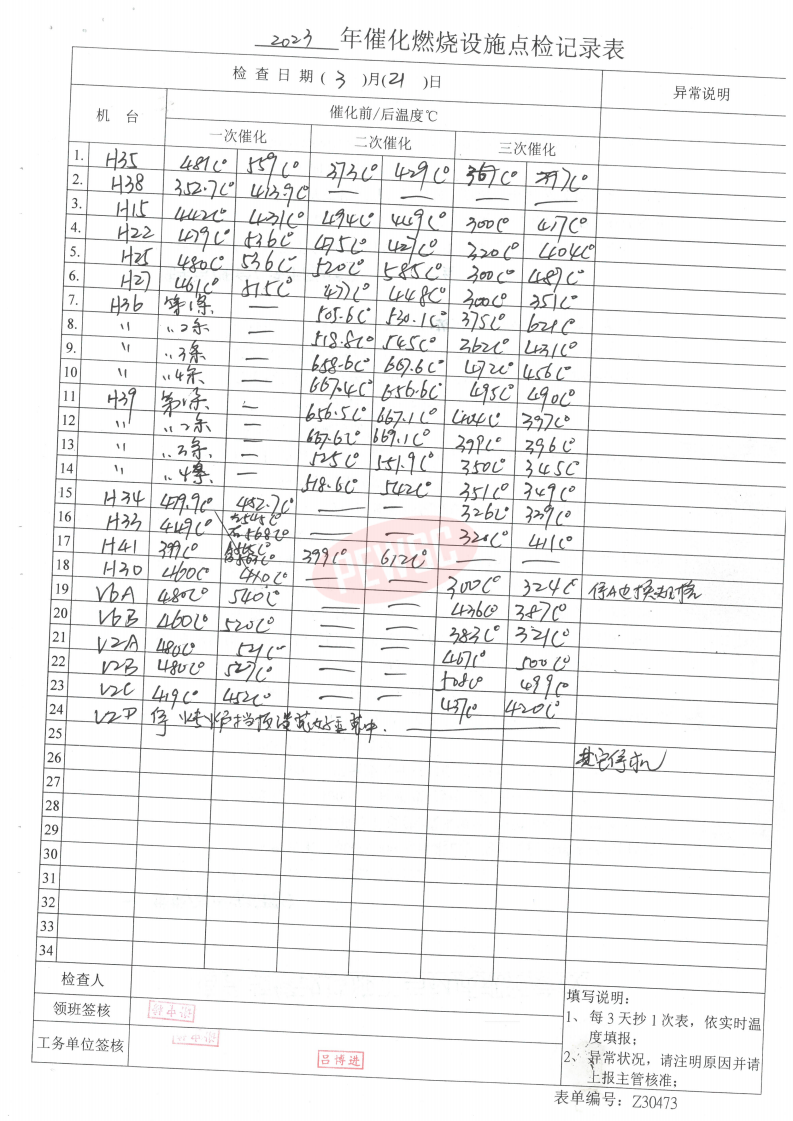 2023 年催化燃烧设施点检记录表
检查日期( 3 )月(21 )日 异常说明
机 台 催化前/后温度℃
一次催化 二次催化 三次催化
1. H35 481C° 559C° 373C° 429C° 367C° 397C°
2. H38 352.7C° 413.9C° — — — —
3. H15 442C° 431C° 494C° 449C° 300C° 417C°
4. H22 479C° 536C° 475C° 427C° 320C° 404C°
5. H25 480C° 536C° 520C° 585C° 300C° 487C°
6. H27 461C° 515C° 477C° 448C° 300C° 351C°
7. H36 第1条 — 505.6C° 530.1C° 375C° 621C°
8. 〃 〃2条 — 518.8C° 545C° 362C° 431C°
9. 〃 〃3条 — 658.6C° 667.6C° 472C° 456C°
10 〃 〃4条 — 667.4C° 656.6C° 495C° 490C°
11 H39 第1条 — 656.5C° 667.1C° 404C° 397C°
12 〃 〃2条 — 667.6C° 669.1C° 399C° 396C°
13 〃 〃3条 — 525C° 551.9C° 350C° 345C°
14 〃 〃4条 — 518.6C° 542C° 351C° 349C°
15 H34 479.9C° 452.7C° — — 326C° 339C°
16 H33 449C° 左545C° 右568C° — — 320C° 411C°
17 H41 399C° 399C° 612C° — —
18 H30 460C° 440C° — — 300C° 324C°
19 V6A 480C° 540C° — — 436C° 387C°
20 V6B 460C° 520C° — — 383C° 321C°
21 V2A 480C° 521C° — — 467C° 500C°
22 V2B 480C° 527C° — — 508C° 499C°
23 V2C 419C° 452C° — — 437C° 420C°
24 V2D 停
25
26 其它停机
27
28
29
30
31
32
33
34
PEWC
检查人
领班签核
工务单位签核
吕博进
填写说明:
1、 每3天抄1次表，依实时温
度填报；
2、 异常状况，请注明原因并请
上报主管核准；
表单编号：Z30473